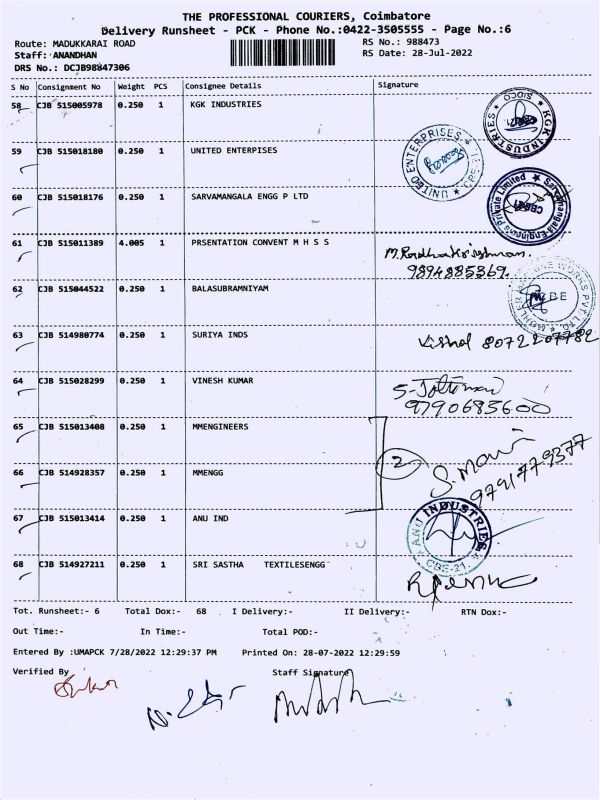 THE PROFESSIONAL COURIERS, Coimbatore
Delivery Runsheet - PCK - Phone No.:0422-3505555 - Page No.:6
Route: MADUKKARAI ROAD RS No.: 988473
Staff: ANANDHAN RS Date: 28-Jul-2022
DRS No.: DCJB98847306
S No Consignment No Weight PCS Consignee Details Signature
58 CJB 515005978 0.250 1 KGK INDUSTRIES
KGK INDUSTRIES ★ SIDCO ★
59 CJB 515018180 0.250 1 UNITED ENTERPISES
UNITED ENTERPRISES ★ CBE-21 ★
60 CJB 515018176 0.250 1 SARVAMANGALA ENGG P LTD
Sarvamangala Engineers Private Limited ★ CBE-21
61 CJB 515011389 4.005 1 PRSENTATION CONVENT M H S S
M. Radhakrishnan.
9894885369.
62 CJB 515044522 0.250 1 BALASUBRAMNIYAM
CBE
63 CJB 514980774 0.250 1 SURIYA INDS
Vishal 8072207782
64 CJB 515028299 0.250 1 VINESH KUMAR
9790685600
65 CJB 515013408 0.250 1 MMENGINEERS
2
S. Mani
9791779377
66 CJB 514928357 0.250 1 MMENGG
67 CJB 515013414 0.250 1 ANU IND
ANU INDUSTRIES ★ CBE-21. ★
68 CJB 514927211 0.250 1 SRI SASTHA TEXTILESENGG
Tot. Runsheet:- 6 Total Dox:- 68 I Delivery:- II Delivery:- RTN Dox:-
Out Time:- In Time:- Total POD:-
Entered By :UMAPCK 7/28/2022 12:29:37 PM Printed On: 28-07-2022 12:29:59
Verified By Staff Signature